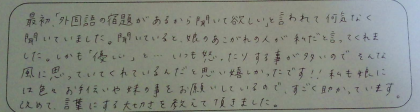 最初「外国語の宿題があるから聞いて欲しい」と言われて何気なく
聞いていました。聞いていると、娘のあこがれの人が私だと言ってくれま
した。しかも「優しい」と…いつも怒ったりする事が多いのでそんな
風に思っていてくれているんだと思い嬉しかったです!!私も娘に
は色々お手伝いや妹の事をお願いしているので、すごく助かっています。
改めて、言葉にする大切さを教えて頂きました。